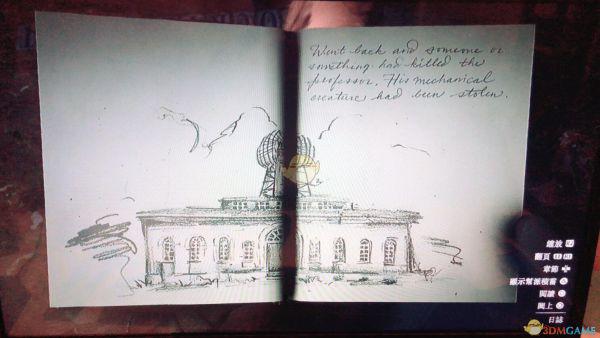 Went back and someone or
something had killed the
professor. His mechanical
creature had been stolen.
縮放
翻頁
章節
顯示幫派檔窗
閱讀
闔上
日誌
3DMGAME